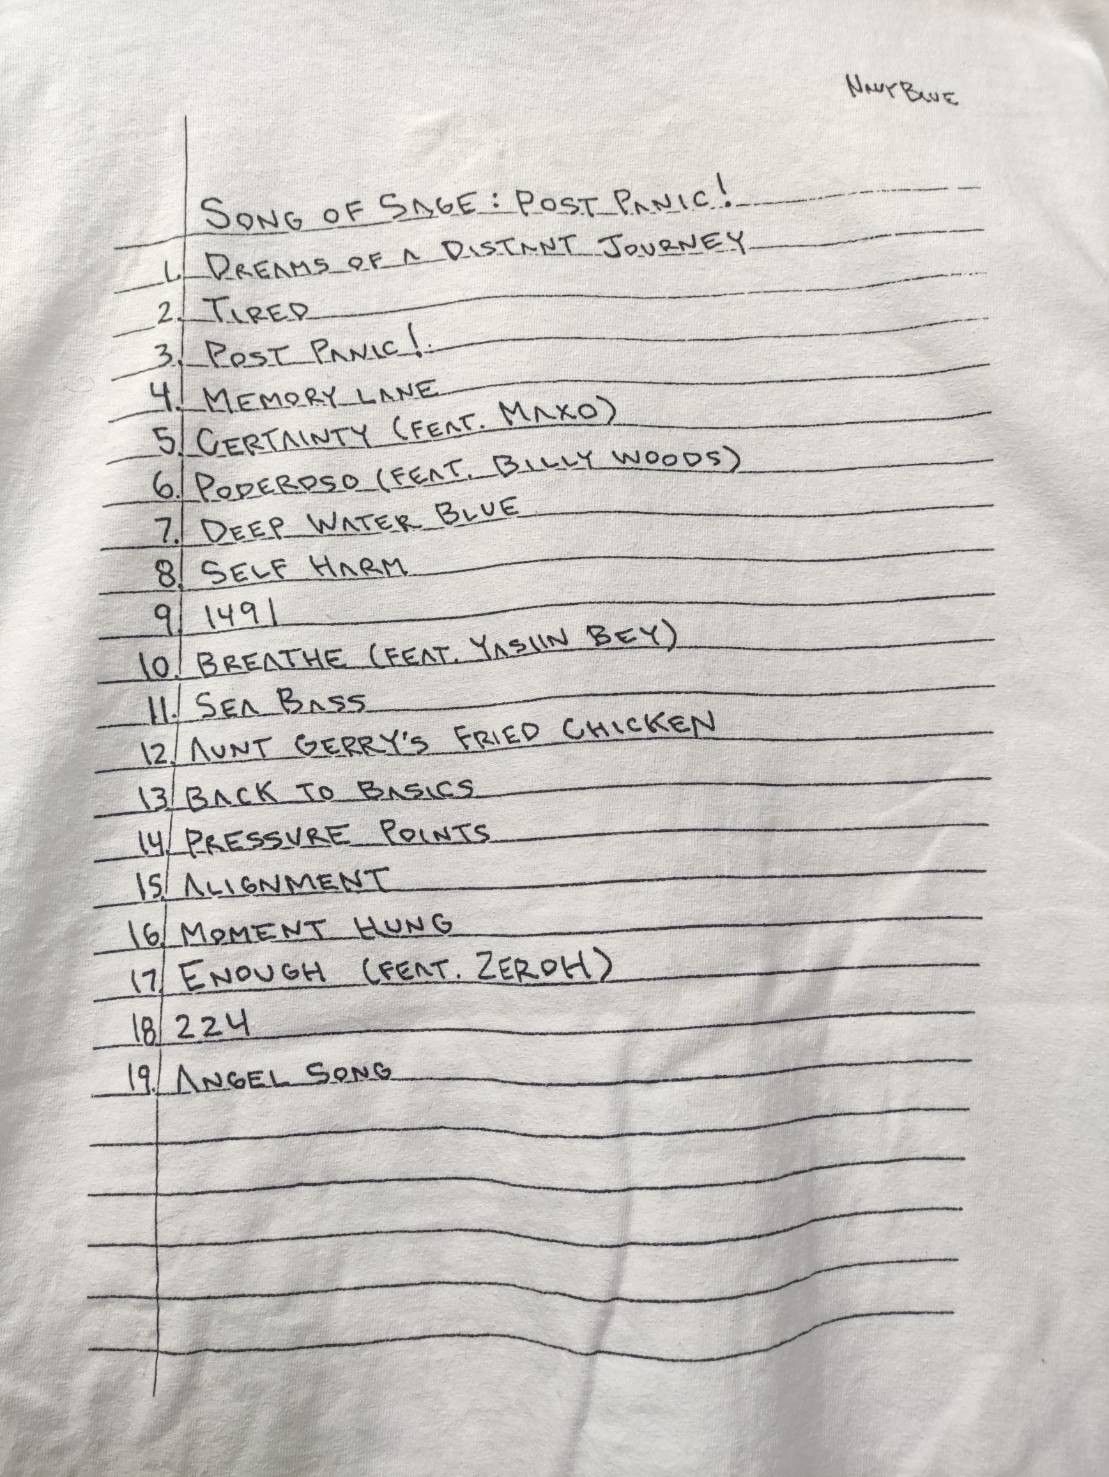 NAVY BLUE
SONG OF SAGE: POST PANIC!
1. DREAMS OF A DISTANT JOURNEY
2. TIRED
3. POST PANIC!
4. MEMORY LANE
5. CERTAINTY (FEAT. MAXO)
6. PODEROSO (FEAT. BILLY WOODS)
7. DEEP WATER BLUE
8. SELF HARM
9. 1491
10. BREATHE (FEAT. YASIIN BEY)
11. SEA BASS
12. AUNT GERRY'S FRIED CHICKEN
13. BACK TO BASICS
14. PRESSURE POINTS
15. ALIGNMENT
16. MOMENT HUNG
17. ENOUGH (FEAT. ZEROH)
18. 224
19. ANGEL SONG